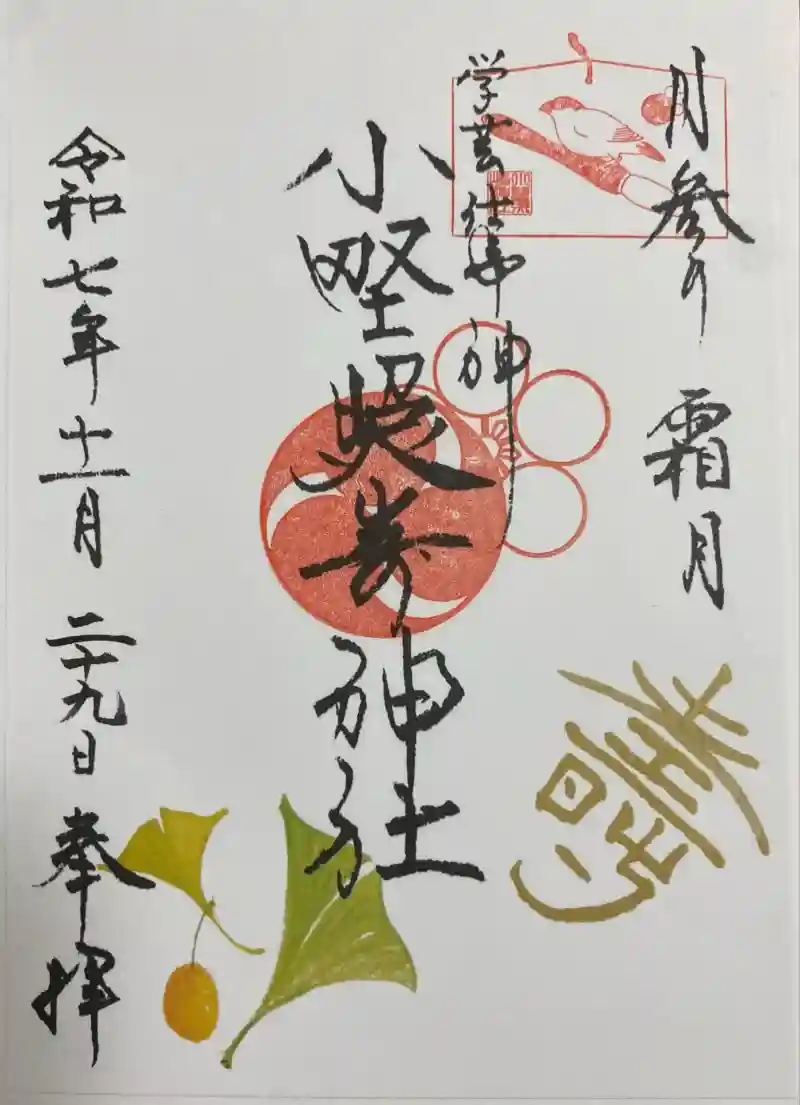 月参り 霜月
学芸仕事神
小野照崎神社
壽
令和七年十一月二十九日 奉拝